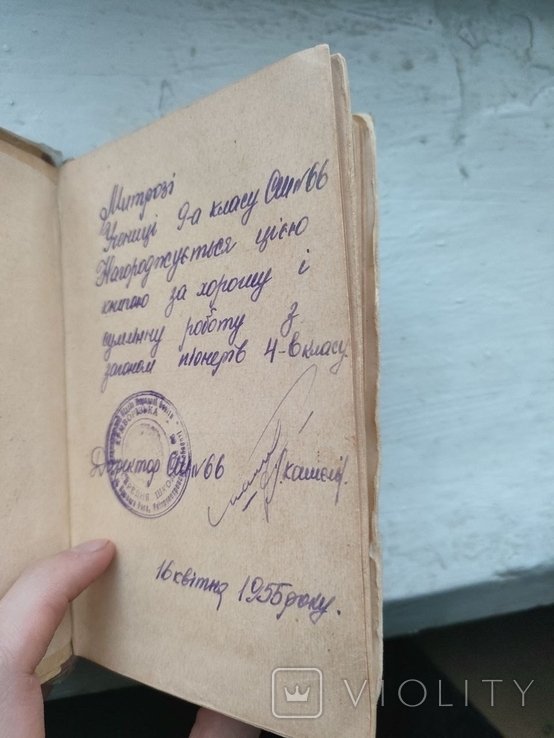 Митрозі
Учениці 9-а класу СШ№66
Нагороджується цією
книгою за хорошу і
сумлінну роботу з
загоном піонерів 4-в класу.
КРИВОРІЗЬКА
Директор СШ№66
16 квітня 1955 року.
VIOLITY